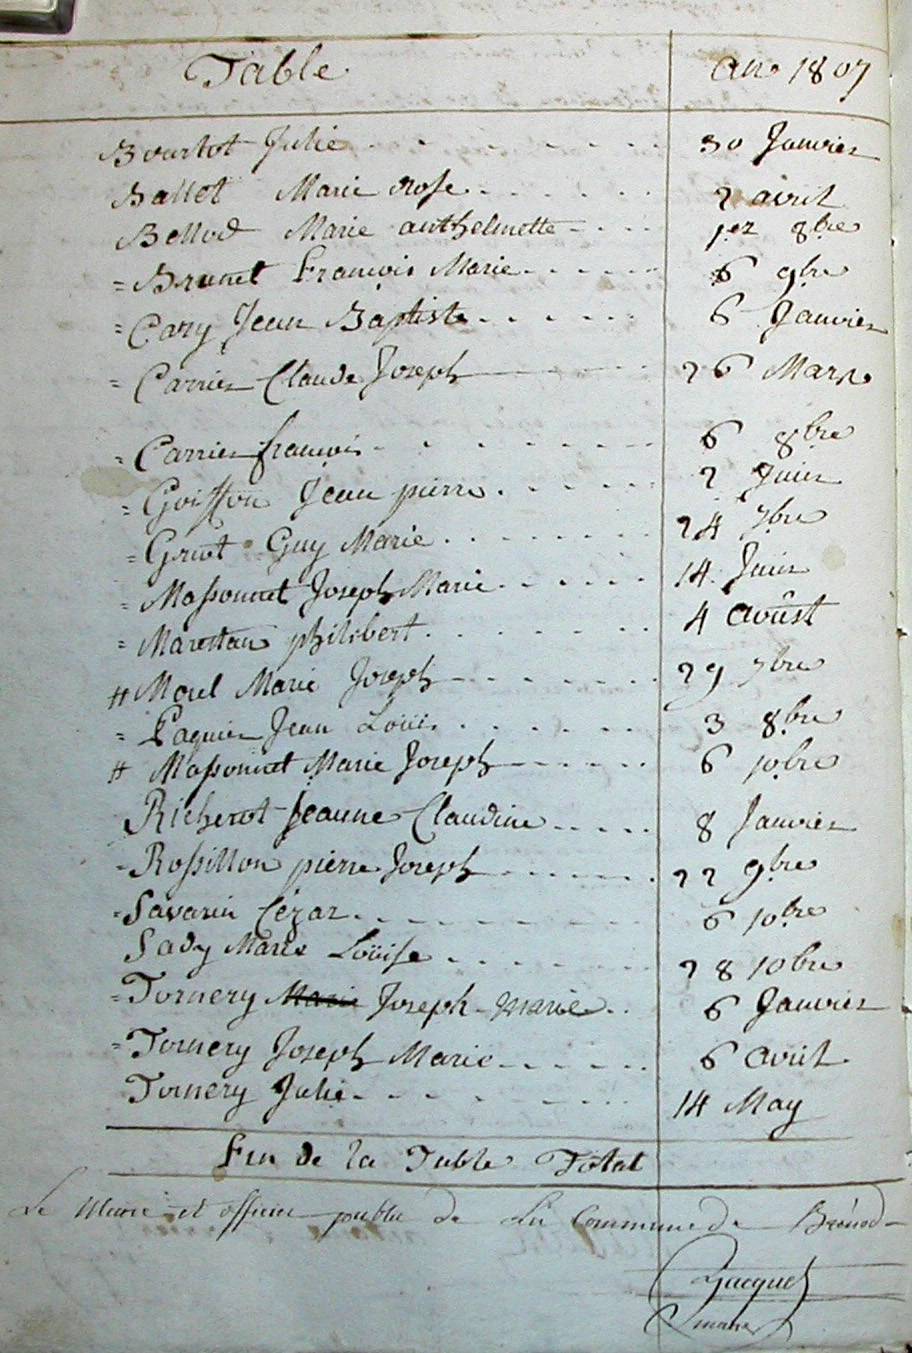 Table an 1807
Bourlot Julie 30 Janvier
Ballet Marie rose 2 avril
Bellod Marie anthelmette 1er 8bre
= Brunet François Marie 6 9bre
= Cary Jean Baptiste 6 Janvier
= Carrier Claude Joseph 26 Mars
= Carrier françois 6 8bre
= Goiffon Jean pierre 2 Juin
= Griot Guy Marie 24 7bre
= Massonnet Joseph Marie 14 Juin
= philibert 4 Août
# Morel Marie Joseph 29 7bre
= Paquier Jean Louis 3 8bre
# Massonnet Marie Joseph 6 10bre
Richerot Jeanne Claudine 8 Janvier
= Rossillon pierre Joseph 22 9bre
= Savarin Cézar 6 10bre
Sady Marie Loüise 28 10bre
= Tornery Marie Joseph Marie 6 Janvier
= Tornery Joseph Marie 6 avril
Tornery Julie 14 May
Fin de la Table Total
Le Maire et officier public de La Commune de Brénod
maire